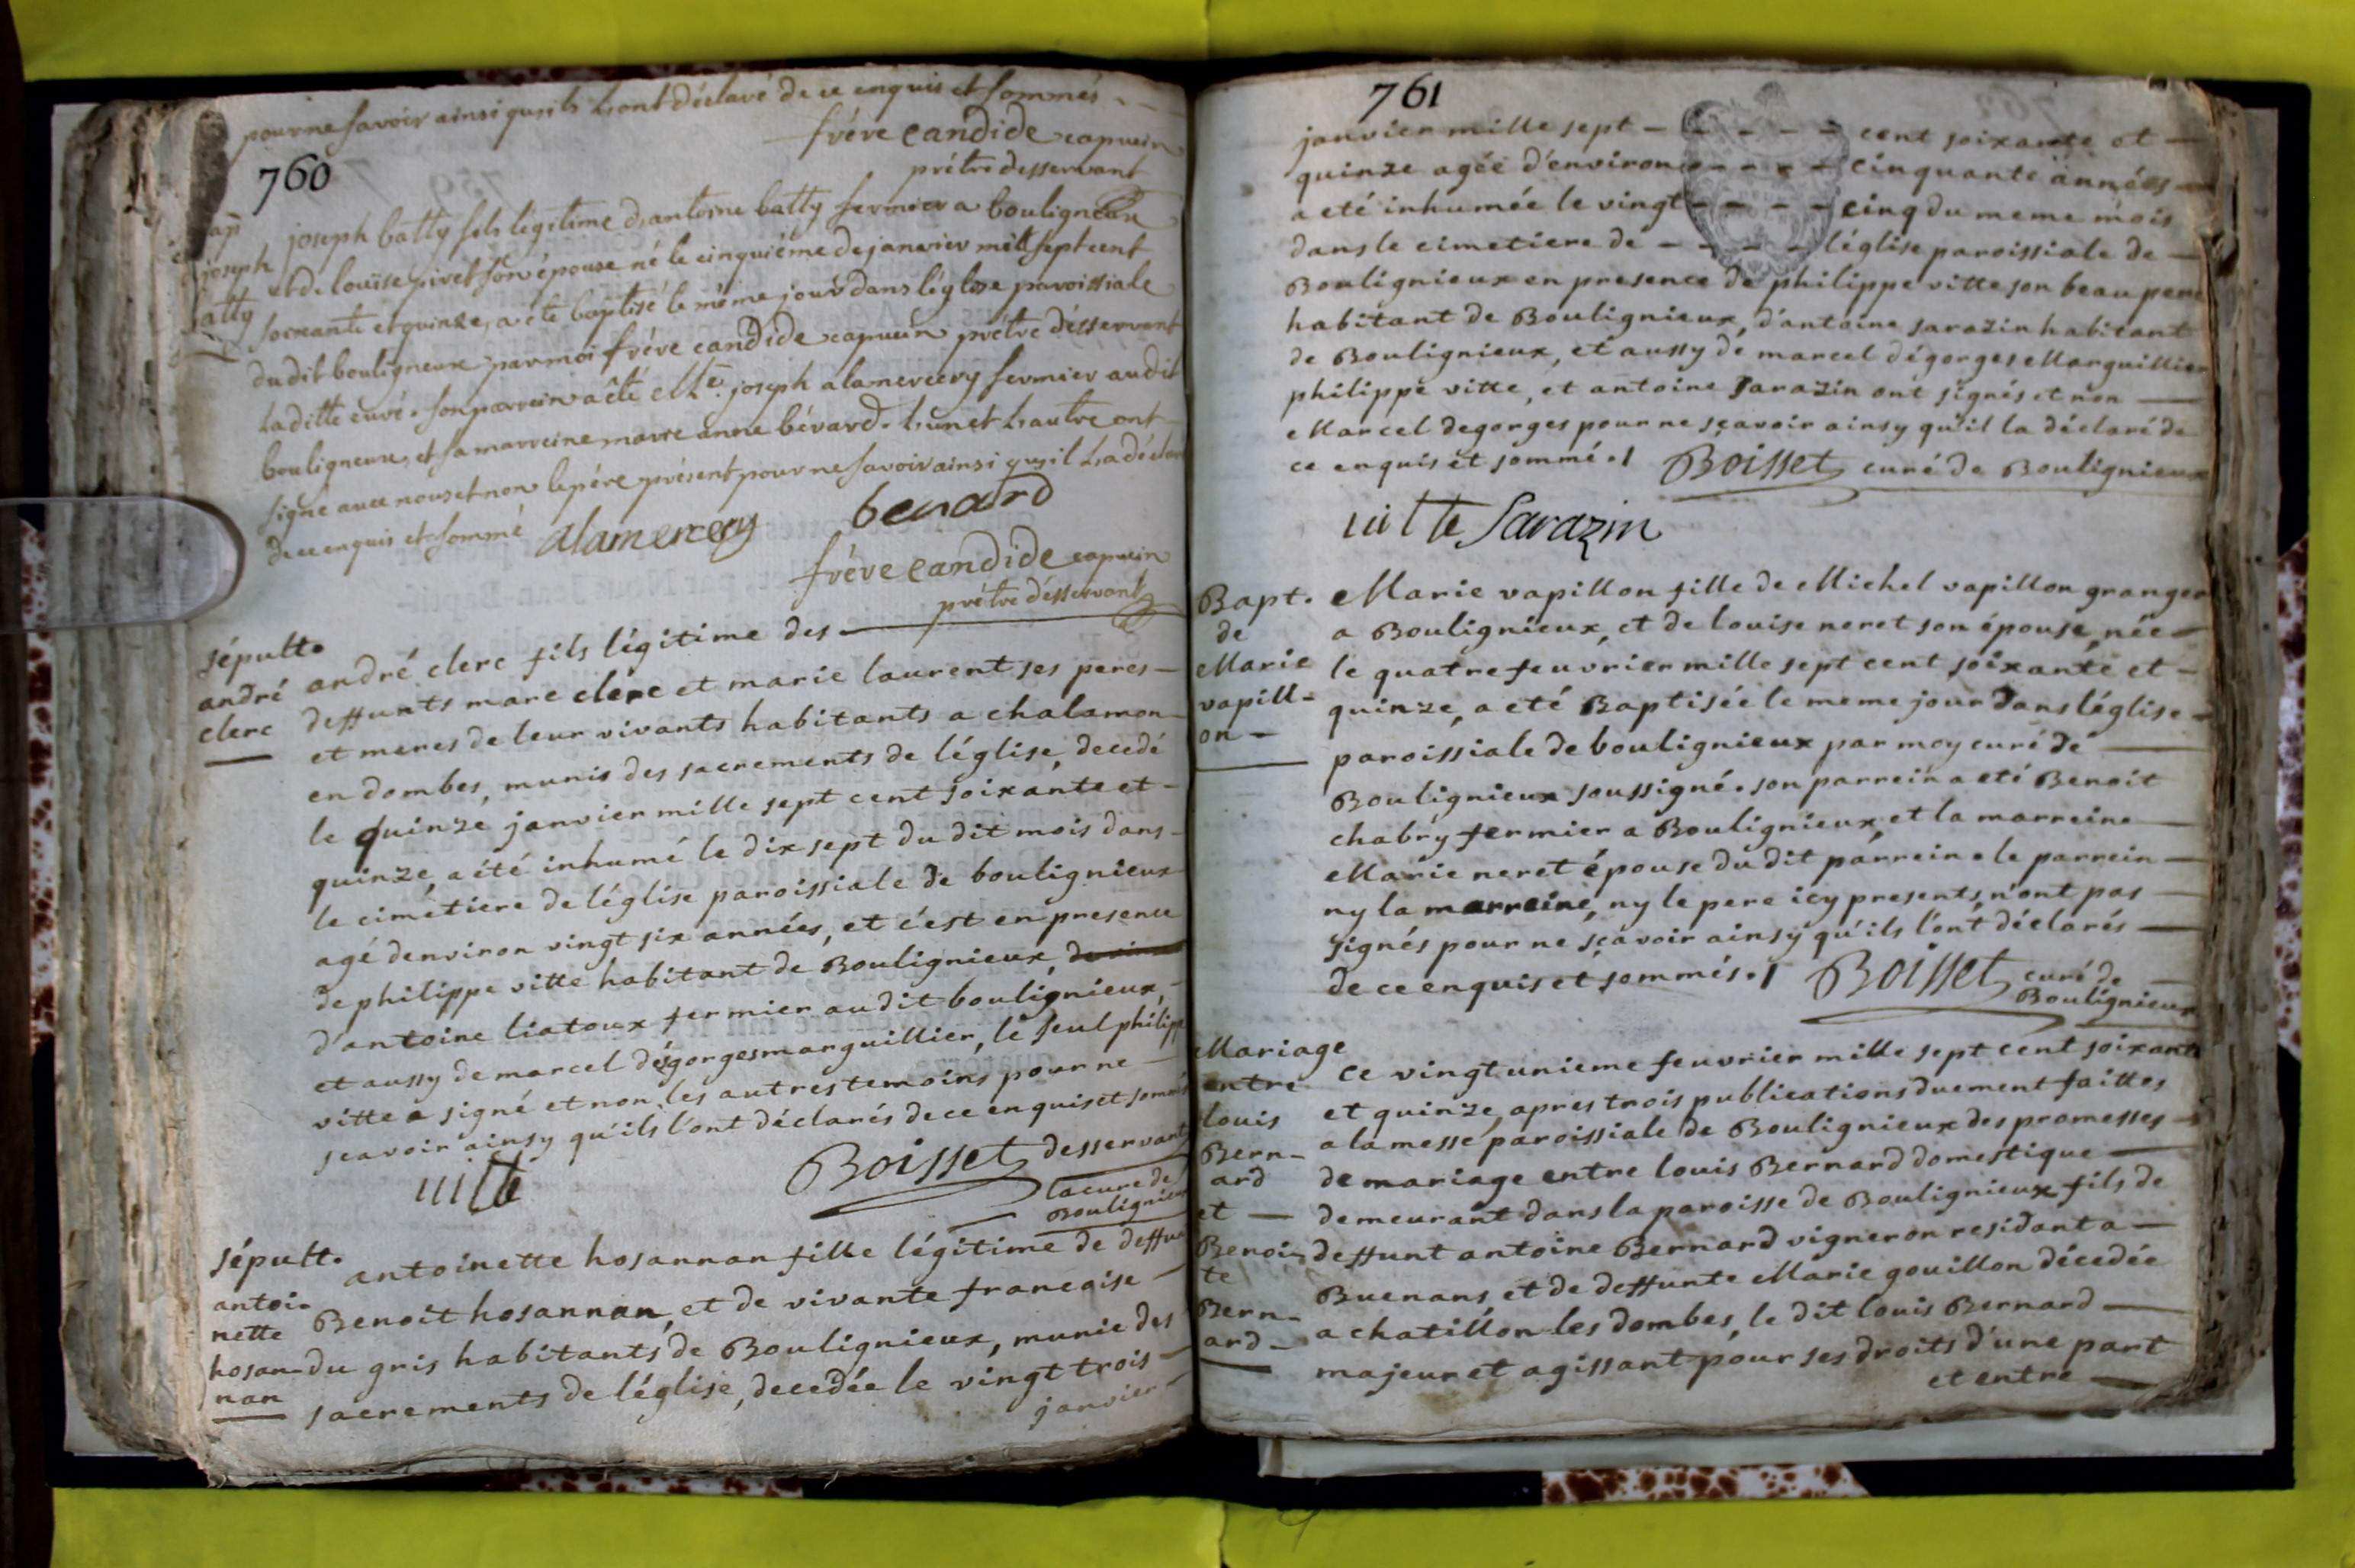 pour ne savoir ainsi qu'ils l'ont déclaré de ce enquis et sommés
frére candide capucin
prétre desservant
760
bap
joseph
batty
joseph batty fils légitime d'antoine batty fermier a bouligneux
et de louïse pivet son épouse né le cinquiéme de janvier mill sept cent
soixante et quinze, a été baptisé le même jour dans léglise paroissiale
du dit bouligneux par moi frére candide capucin prétre désservant
la ditte cure. son parrein a été Me. joseph alamercery fermier au dit
bouligneux, et sa marreine marie anne bérard. l'un et l'autre ont
signé avec nous et non le pére présent pour ne savoir ainsi qu'il l'a déclaré
de ce enquis et sommé alamercery benard
frére candide capucin
prétre désservant
sépult.
andré
clerc
andré clerc fils légitime des
deffunts marc clerc et marie laurent ses peres
et meres de leur vivants habitants a chalamon
en dombes, munis des sacrements de léglise, decedé
le quinze janvier mille sept cent soixante et
quinze, a été inhumé le dix sept du dit mois dans
le cimetiere de léglise paroissiale de boulignieux
agé denviron vingt six années, et c'est en presence
de philippe vitte habitant de Boulignieux,
d'antoine liatoux fermier au dit boulignieux,
et aussy de marcel dégorges marguillier, le seul philippe
vitte a signé et non les autres temoins pour ne
scavoir ainsy qu'ils l'ont déclarés de ce enquis et sommés
uitte Boisset desservant
la cure de
Boulignieux
sépult.
antoi.
nette
hosan-
nan
antoinette hosannan fille légitime de deffunt
Benoit hosannan, et de vivante francaise
du gris habitants de Boulignieux, munie des
sacrements de léglise, decedée le vingt trois
janvier
761
janvier mille sept - - - - - cent soixante et
quinze agée d'environ - - - - cinquante années
a eté inhumée le vingt - - - - cinq du meme mois
dans le cimetiere de - - - - - léglise paroissiale de
Boulignieux en presence de philippe vitte son beau pere
habitant de Boulignieux, d'antoine sarazin habitant
de Boulignieux, et aussy de marcel dégorges Marguillier
philippe vitte, et antoine sarazin ont signés et non
Marcel degorges pour ne sçavoir ainsy qu'il la déclaré de
ce enquis et sommé. Boisset curé de Boulignieux
uitte Sarazin
Bapt.
de
Marie
vapill-
on -
Marie vapillon fille de Michel vapillon granger
a Boulignieux, et de louise neret son épouse, née
le quatre feuvrier mille sept cent soixante et -
quinze, a eté Baptisée le meme jour dans léglise
paroissiale de boulignieux par moy curé de
Boulignieux soussigné. son parrein a eté Benoit
chabry fermier a Boulignieux, et la marreine
Marie neret épouse du dit parrein. le parrein
ny la marreine, ny le pere icy presents, n'ont pas
signés pour ne sçavoir ainsy qu'ils l'ont déclarés
de ce enquis et sommés. Boisset curé de
Boulignieux
Mariage
entre
louis
Bern-
ard
et
Benoi-
te
Bern-
ard -
ce vingt unieme feuvrier mille sept cent soixante
et quinze, apres trois publications duement faittes
a la messe paroissiale de Boulignieux des promesses
de mariage entre louis Bernard domestique
demeurant dans la paroisse de Boulignieux fils de
deffunt antoine Bernard vigneron residant a
Buenans, et de deffunte Marie gouillon décedée
a chatillon les dombes, le dit louis Bernard
majeur et agissant pour ses droits d'une part
et entre